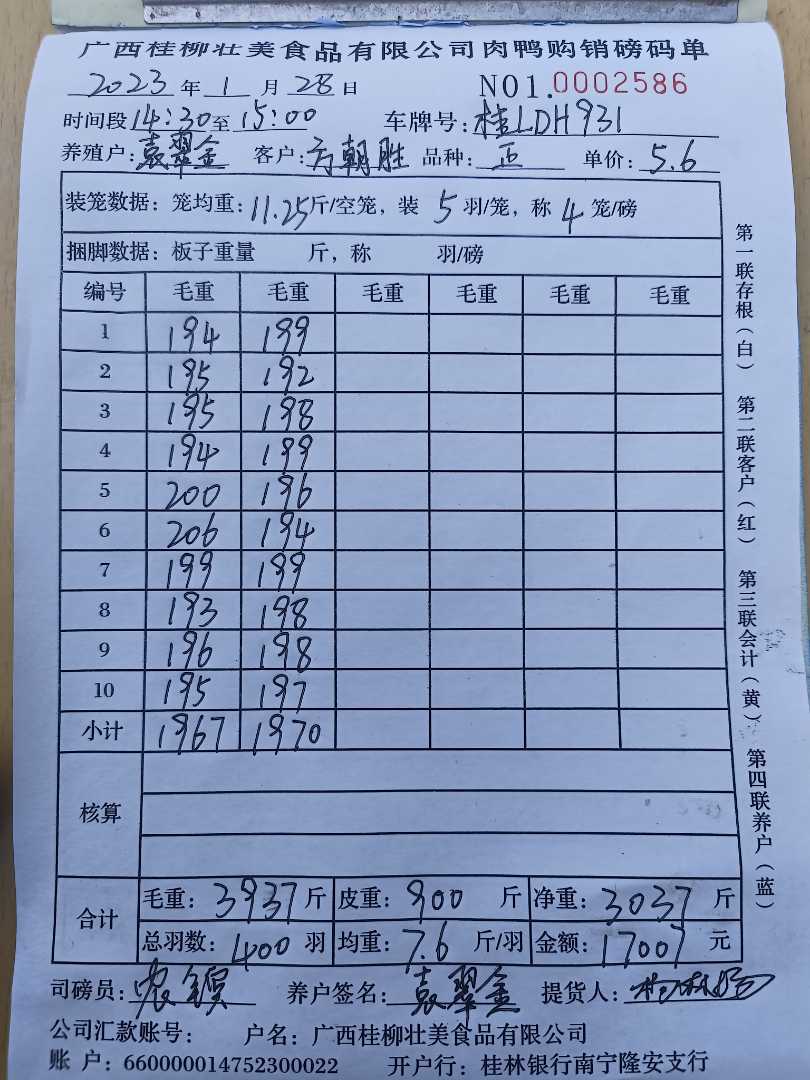 广西桂柳壮美食品有限公司肉鸭购销磅码单
2023 年 1 月 28 日 NO1.0002586
时间段 14:30 至 15:00 车牌号: 桂LDH931
养殖户: 袁翠金 客户: 方朝胜 品种: 正 单价: 5.6
装笼数据: 笼均重: 11.25 斤/空笼, 装 5 羽/笼, 称 4 笼/磅
捆脚数据: 板子重量 斤, 称 羽/磅
编号 毛重 毛重 毛重 毛重 毛重 毛重
1 194 199
2 195 192
3 195 198
4 194 199
5 200 196
6 206 194
7 199 199
8 193 198
9 196 198
10 195 197
小计 1967 1970
核算
合计 毛重: 3937 斤 皮重: 900 斤 净重: 3037 斤
总羽数: 400 羽 均重: 7.6 斤/羽 金额: 17007 元
司磅员: 农 养户签名: 袁翠金 提货人:
公司汇款账号: 户名: 广西桂柳壮美食品有限公司
账 户: 660000014752300022 开户行: 桂林银行南宁隆安支行
第一联存根(白) 第二联客户(红) 第三联会计(黄) 第四联养户(蓝)